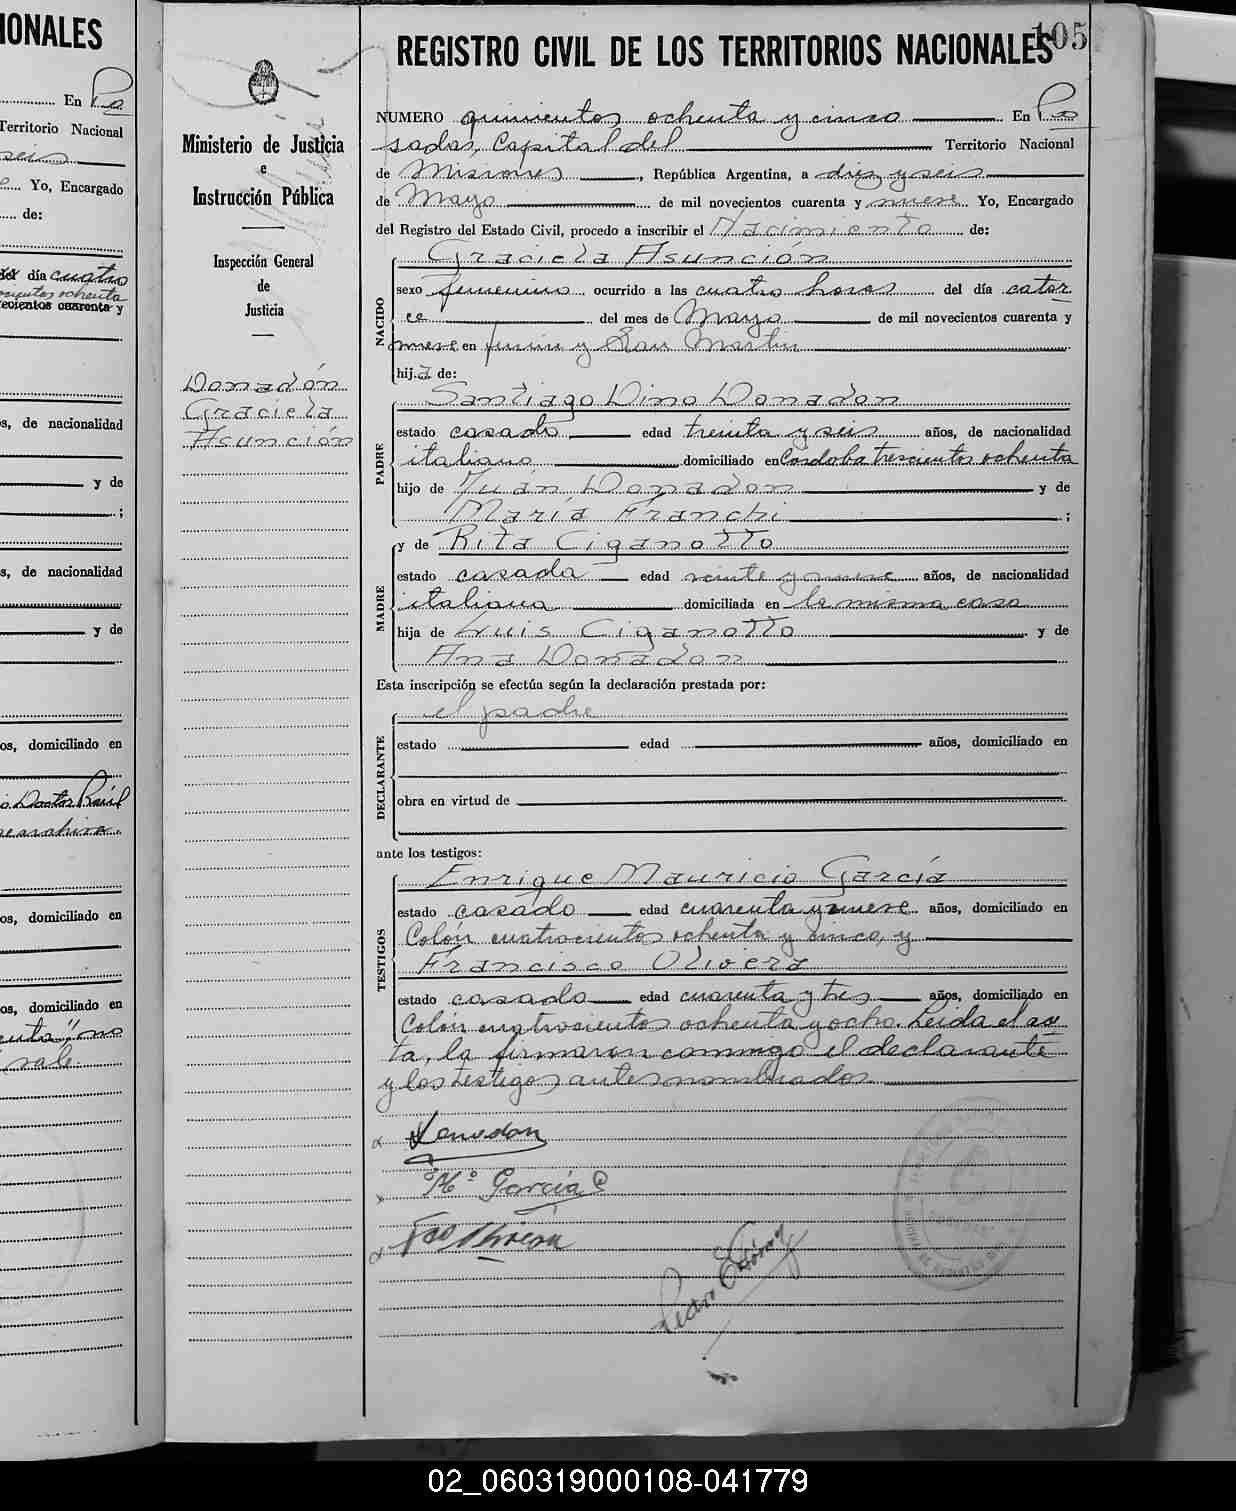 IONALES
En Po
Territorio Nacional
seis
Yo, Encargado
de:
del día cuatro
recientos cuarenta y
s, de nacionalidad
y de
;
s, de nacionalidad
y de
os, domiciliado en
Doctor Raúl
se archiva.
os, domiciliado en
os, domiciliado en
vale.
Ministerio de Justicia
e
Instrucción Pública
Inspección General
de
Justicia
Donadón
Graciela
Asunción
105
REGISTRO CIVIL DE LOS TERRITORIOS NACIONALES
NUMERO quinientos ochenta y cinco En Po
sadas, Capital del Territorio Nacional
de Misiones, República Argentina, a diez y seis
de Mayo de mil novecientos cuarenta y nueve Yo, Encargado
del Registro del Estado Civil, procedo a inscribir el Nacimiento de:
NACIDO
Graciela Asunción
sexo femenino ocurrido a las cuatro horas del día cator
ce del mes de Mayo de mil novecientos cuarenta y
nueve en Junin y San Martin
hija de:
PADRE
Santiago Dino Donadon
estado casado edad treinta y seis años, de nacionalidad
italiano domiciliado en Córdoba trescientos ochenta
hijo de Juan Donadon y de
María Franchi ;
MADRE
y de Rita Ciganotto
estado casada edad veinte y nueve años, de nacionalidad
italiana domiciliada en la misma casa
hija de Luis Ciganotto y de
Ana Donadon
Esta inscripción se efectúa según la declaración prestada por:
DECLARANTE
el padre
estado edad años, domiciliado en
obra en virtud de
ante los testigos:
TESTIGOS
Enrique Mauricio García
estado casado edad cuarenta y nueve años, domiciliado en
Colón cuatrocientos ochenta y cinco, y
Francisco Olivera
estado casado edad cuarenta y tres años, domiciliado en
Colón cuatrocientos ochenta y ocho. Leida el ac
ta, la firmaron conmigo el declarante
y los testigos antes nombrados
Donadon
Mº García
Fco Olivera
02_060319000108-041779